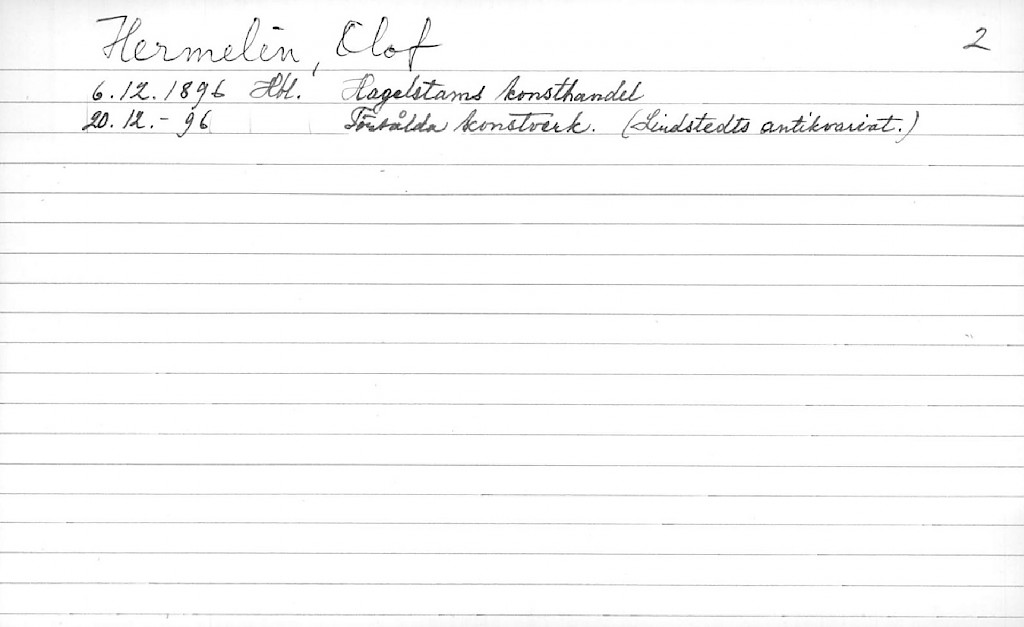 Hermelin, Olof 2
6.12.1896 Hbl. Hagelstams konsthandel
20.12.- 96 Försålda konstverk. (Lindstedts antikvariat.)